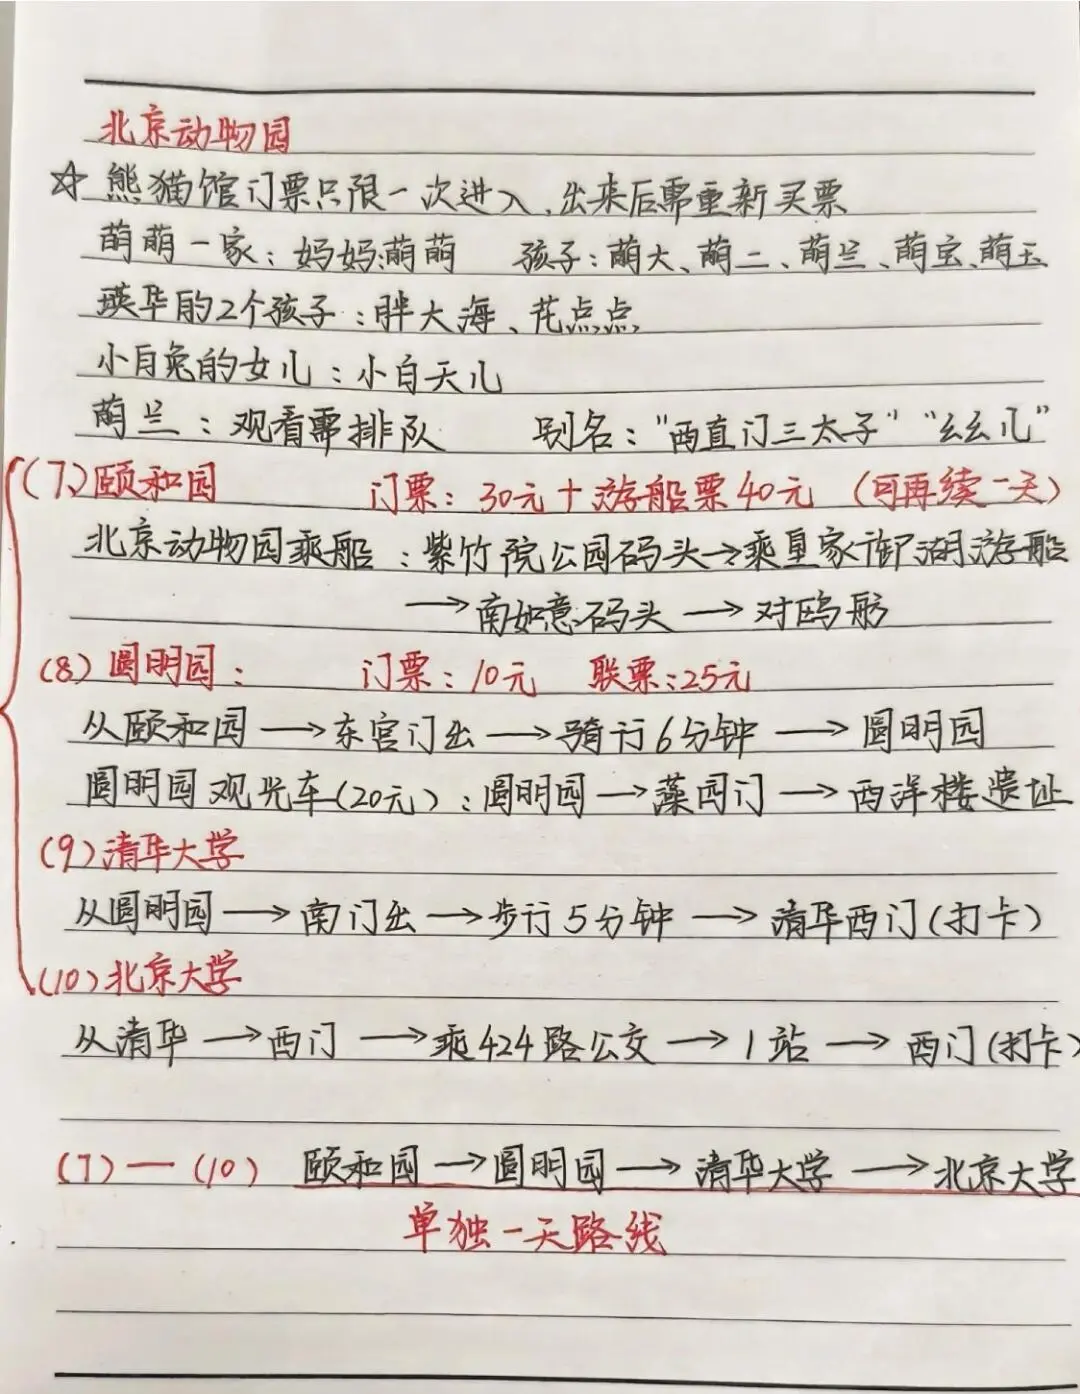 北京动物园
☆ 熊猫馆门票只限一次进入、出来后需重新买票
萌萌一家：妈妈:萌萌 孩子：萌大、萌二、萌兰、萌宝、萌玉
瑛华的2个孩子：胖大海、花点点
小白兔的女儿：小白天儿
萌兰：观看需排队 别名：“西直门三太子”“幺幺儿”
(7)颐和园 门票：30元+游船票40元 (可再续一天)
北京动物园乘船：紫竹院公园码头→乘皇家御湖游船
→南如意码头→对鸥舫
(8)圆明园： 门票：10元 联票:25元
从颐和园→东宫门出→骑行6分钟→圆明园
圆明园观光车(20元)：圆明园→藻园门→西洋楼遗址
(9)清华大学
从圆明园→南门出→步行5分钟→清华西门(打卡)
(10)北京大学
从清华→西门→乘424路公交→1站→西门(打卡)
(7)—(10) 颐和园→圆明园→清华大学→北京大学
单独一天路线